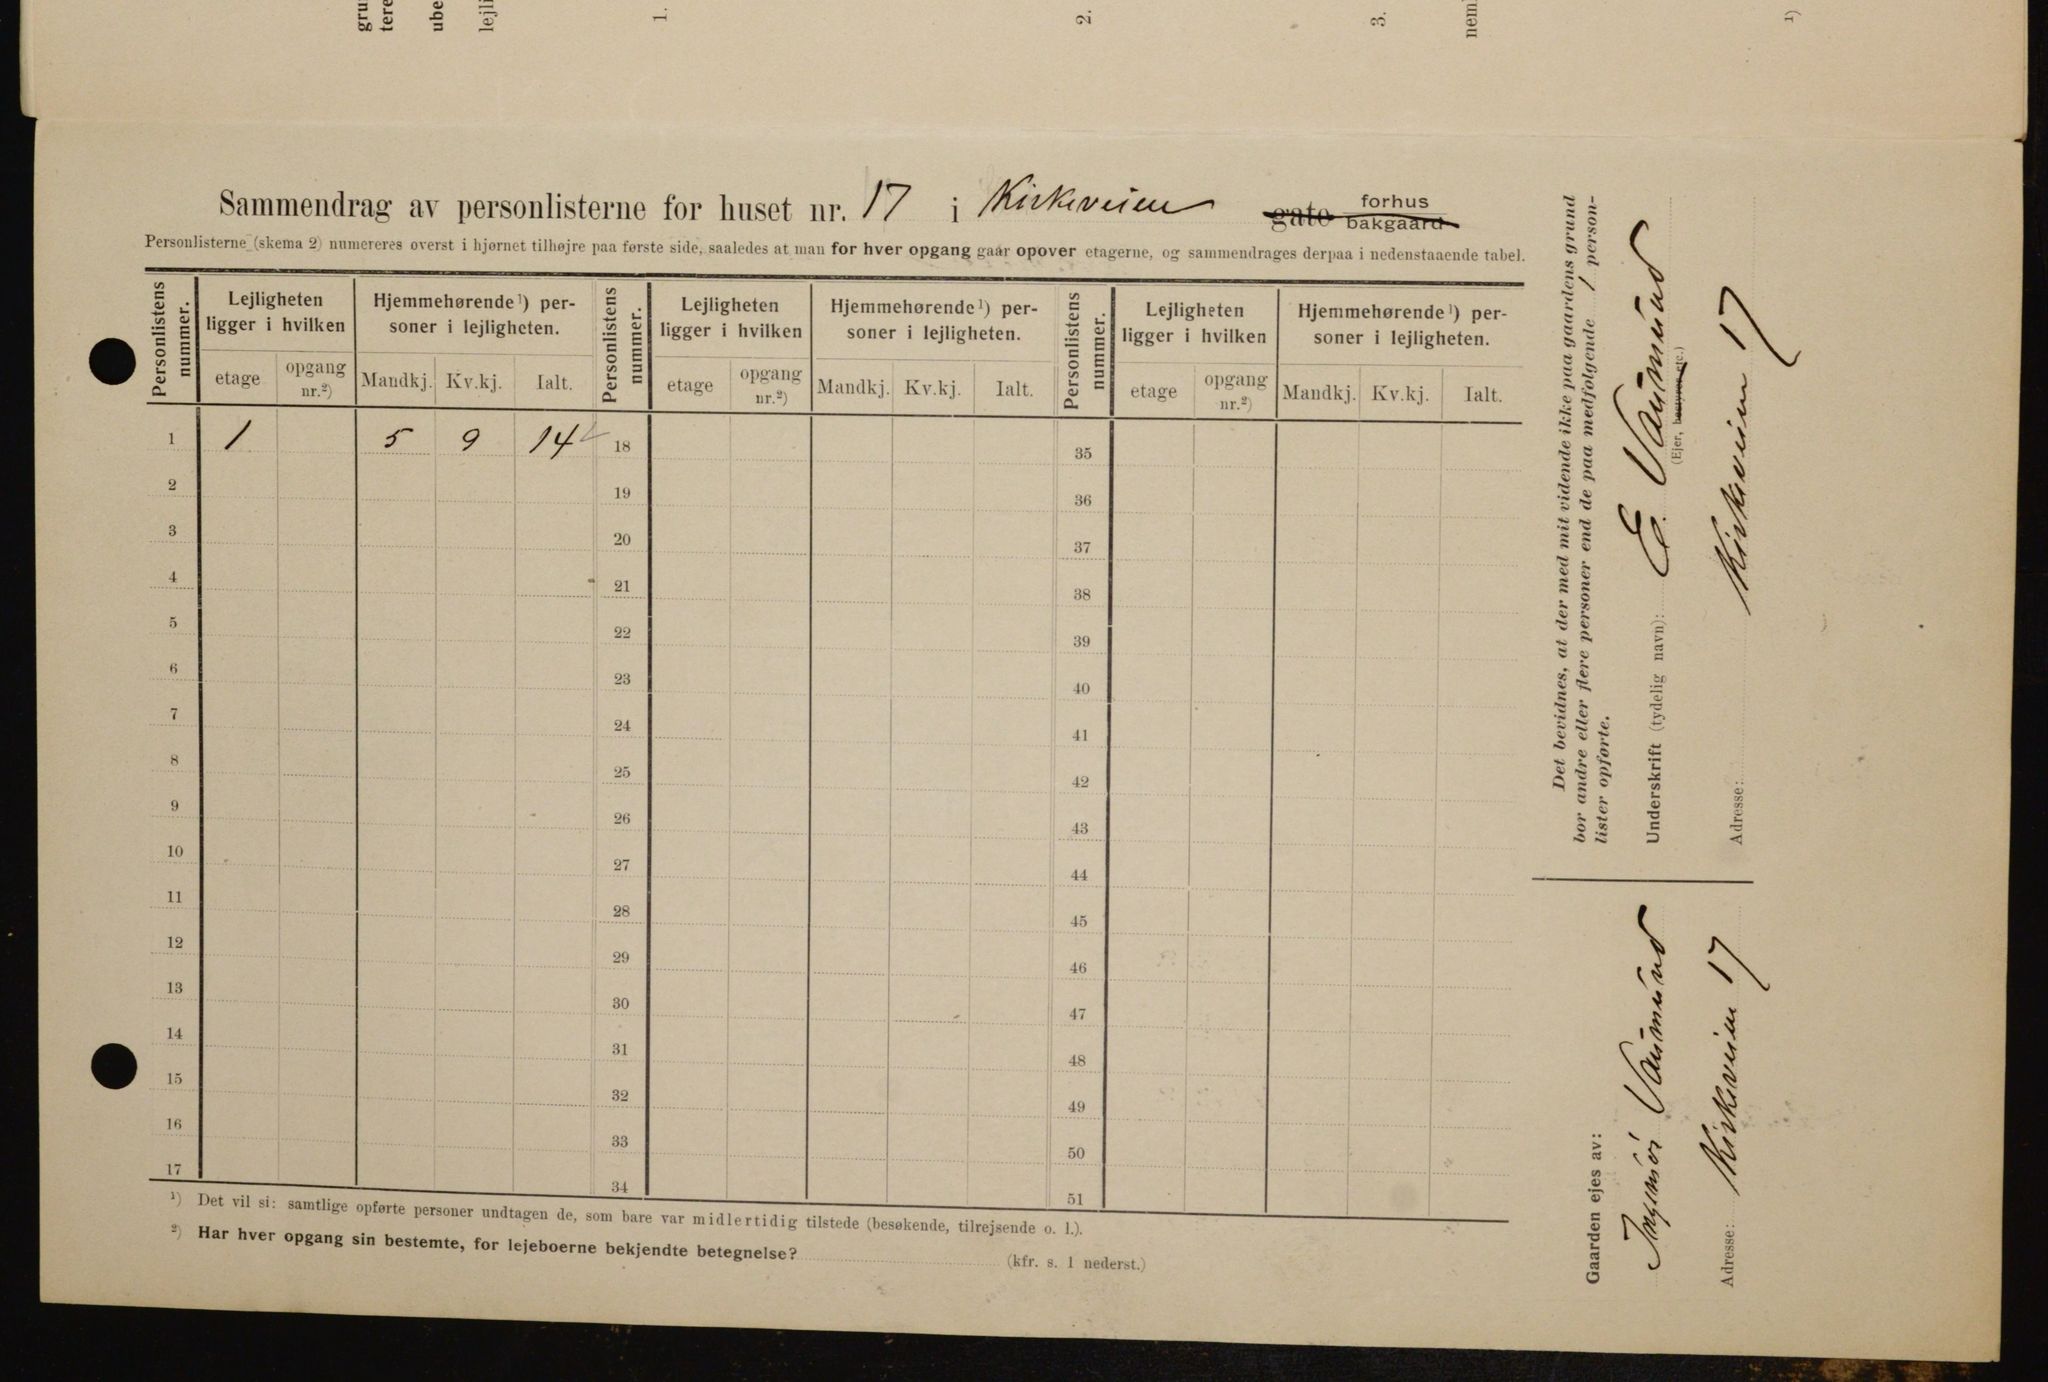 1.
2.
3.
1)
Sammendrag av personlisterne for huset nr. 17 i Kirkeveien gate forhus bakgaard
Personlisterne (skema 2) numereres øverst i hjørnet tilhøjre paa første side, saaledes at man for hver opgang gaar opover etagerne, og sammendrages derpaa i nedenstaaende tabel.
Personlistens nummer. Lejligheten ligger i hvilken Hjemmehørende¹) personer i lejligheten. Personlistens nummer. Lejligheten ligger i hvilken Hjemmehørende¹) personer i lejligheten. Personlistens nummer. Lejligheten ligger i hvilken Hjemmehørende¹) personer i lejligheten.
etage opgang nr.²) Mandkj. Kv.kj. Ialt. etage opgang nr.²) Mandkj. Kv.kj. Ialt. etage opgang nr.²) Mandkj. Kv.kj. Ialt.
1 1 5 9 14 18 35
2 19 36
3 20 37
4 21 38
5 22 39
6 23 40
7 24 41
8 25 42
9 26 43
10 27 44
11 28 45
12 29 46
13 30 47
14 31 48
15 32 49
16 33 50
17 34 51
¹) Det vil si: samtlige opførte personer undtagen de, som bare var midlertidig tilstede (besøkende, tilrejsende o. l.).
²) Har hver opgang sin bestemte, for lejeboerne bekjendte betegnelse? (kfr. s. 1 nederst.)
Det bevidnes, at der med mit vidende ikke paa gaardens grund
bor andre eller flere personer end de paa medfølgende 1 person-
lister opførte.
Underskrift (tydelig navn): E. Vaumund
(Ejer, bestyrer etc.)
Adresse: Kirkeveien 17
Gaarden ejes av:
Vaumund
Adresse: Kirkeveien 17